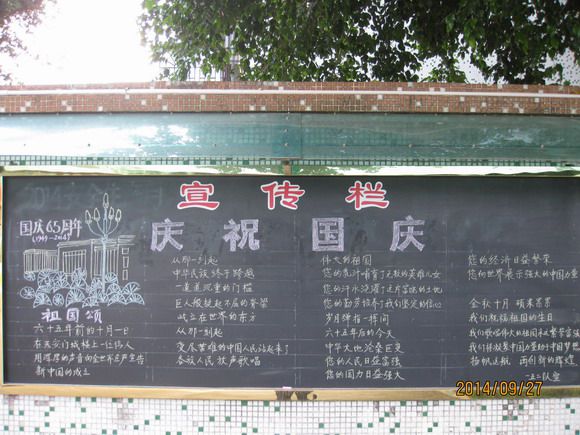 宣传栏
庆祝国庆
国庆65周年
(1949-2014)
祖国颂
六十五年前的十月一日
在天安门城楼上一位伟人
用浑厚的声音向全世界庄严宣告
新中国的成立
从那一刻起
中华民族终于跨越
一道道沉重的门槛
巨人般挺起不屈的脊梁
屹立在世界的东方
从那一刻起
受尽苦难的中国人民站起来了
各族人民放声歌唱
伟大的祖国
您的乳汁哺育了无数的英雄儿女
您的汗水浸灌了这片富饶的土地
您的勤劳培养了我们坚定的信心
岁月弹指一挥间
六十五年后的今天
中华大地沧桑巨变
您的人民日益富强
您的国力日益强大
您的经济日益繁荣
您向世界展示强大的中国力量
金秋十月 硕果累累
我们祝福祖国的生日
我们歌唱伟大的祖国繁荣富强
我们将凝聚中国力量助中国梦想
扬帆远航 再创新的辉煌
2014/09/27